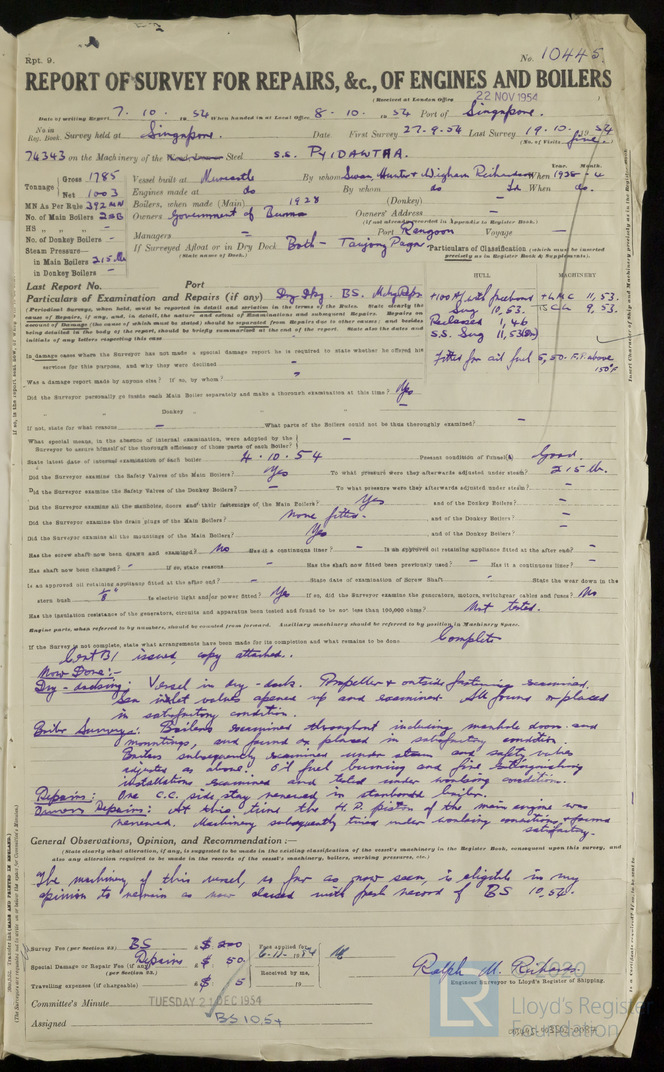 Rpt. 9.
No. 10445.
REPORT OF SURVEY FOR REPAIRS, &c., OF ENGINES AND BOILERS
(Received at London Office 22 NOV 1954
Date of writing Report 7. 10. 1954 When handed in at Local Office 8. 10. 1954 Port of Singapore.
No. in Reg. Book. Survey held at Singapore. Date First Survey 27.9.54 Last Survey 19.10.1954
(No. of Visits five)
74343 on the Machinery of the Steel S.S. PYIDAWTHA.
Tonnage Gross 1785 Net 1003
Vessel built at Newcastle By whom Swan Hunter & Wigham Richardson When 1928 - 4
Engines made at do By whom do When do.
MN As Per Rule 392 MN
Boilers, when made (Main) 1928 (Donkey) –
No. of Main Boilers 2SB
Owners Government of Burma Owners' Address –
(If not already recorded in Appendix to Register Book.)
No. of Donkey Boilers –
Managers – Port Rangoon Voyage –
Steam Pressure—
in Main Boilers 215 lb.
in Donkey Boilers –
If Surveyed Afloat or in Dry Dock Both – Tanjong Pagar
(State name of Dock.)
Particulars of Classification (which must be inserted precisely as in Register Book & Supplements).
Last Report No. Port
HULL MACHINERY
Particulars of Examination and Repairs (if any) Dry Dkg. BS. Mchy Repairs
+100 A1 with freeboard +LMC 11,53.
10,53. 9,53.
1,46
S.S. Sing 11,53
Fitted for oil fuel 5,50. F.P. above 150°F.
In damage cases where the Surveyor has not made a special damage report he is required to state whether he offered his
services for this purpose, and why they were declined
Was a damage report made by anyone else? If so, by whom? –
Did the Surveyor personally go inside each Main Boiler separately and make a thorough examination at this time? Yes
Donkey –
If not, state for what reasons – What parts of the Boilers could not be thus thoroughly examined? –
What special means, in the absence of internal examination, were adopted by the Surveyor to assure himself of the thorough efficiency of those parts of each Boiler? –
State latest date of internal examination of each boiler 4.10.54 Present condition of funnel(s) Good.
Did the Surveyor examine the Safety Valves of the Main Boilers? Yes To what pressure were they afterwards adjusted under steam? 215 lb.
Did the Surveyor examine the Safety Valves of the Donkey Boilers? – To what pressure were they afterwards adjusted under steam? –
Did the Surveyor examine all the manholes, doors and their fastenings of the Main Boilers? Yes and of the Donkey Boilers? –
Did the Surveyor examine the drain plugs of the Main Boilers? None fitted. and of the Donkey Boilers? –
Did the Surveyor examine all the mountings of the Main Boilers? Yes and of the Donkey Boilers? –
Has the screw shaft now been drawn and examined? No Has it a continuous liner? – Is an approved oil retaining appliance fitted at the after end? –
Has shaft now been changed? – If so, state reasons – Has the shaft now fitted been previously used? – Has it a continuous liner? –
Is an approved oil retaining appliance fitted at the after end? – State date of examination of Screw Shaft – State the wear down in the
stern bush 1/8" Is electric light and/or power fitted? Yes If so, did the Surveyor examine the generators, motors, switchgear cables and fuses? No
Has the insulation resistance of the generators, circuits and apparatus been tested and found to be not less than 100,000 ohms? Not tested.
Engine parts, when referred to by numbers, should be counted from forward. Auxiliary machinery should be referred to by position in Machinery Space.
If the Survey is not complete, state what arrangements have been made for its completion and what remains to be done Complete
Cert B1 issued, copy attached.
Now Done:–
Dry-docking: Vessel in dry-dock. Propeller & outside fastenings examined.
Sea inlet valves opened up and examined. All found or placed
in satisfactory condition.
Boiler Surveys: Boilers examined throughout including manhole doors and
mountings, and found or placed in satisfactory condition.
Boilers subsequently examined under steam and safety valves
adjusted as above. Oil fuel burning and fire extinguishing
installations examined and tested under working condition.
Repairs: One C.C. side stay renewed in starboard boiler.
Owners Repairs: At this time the H.P. piston of the main engine was
renewed. Machinery subsequently tried under working conditions & found
satisfactory.
General Observations, Opinion, and Recommendation:—
(State clearly what alteration, if any, is suggested to be made in the existing classification of the vessel's machinery in the Register Book, consequent upon this survey, and
also any alteration required to be made in the records of the vessel's machinery, boilers, working pressures, etc.)
The machinery of this vessel, so far as now seen, is eligible in my
opinion to remain as now classed with fresh record of BS 10,54.
Survey Fee (per Section 23) BS $ 200 Fees applied for 6-11-1954
Special Damage or Repair Fee (if any) (per Section 23.) Repairs $ 50. Received by me,
Travelling expenses (if chargeable) $ 5 19
Ralph M. Richards
Engineer Surveyor to Lloyd's Register of Shipping.
Committee's Minute TUESDAY 21 DEC 1954
Assigned BS 10,54
LR
Lloyd's Register
Foundation